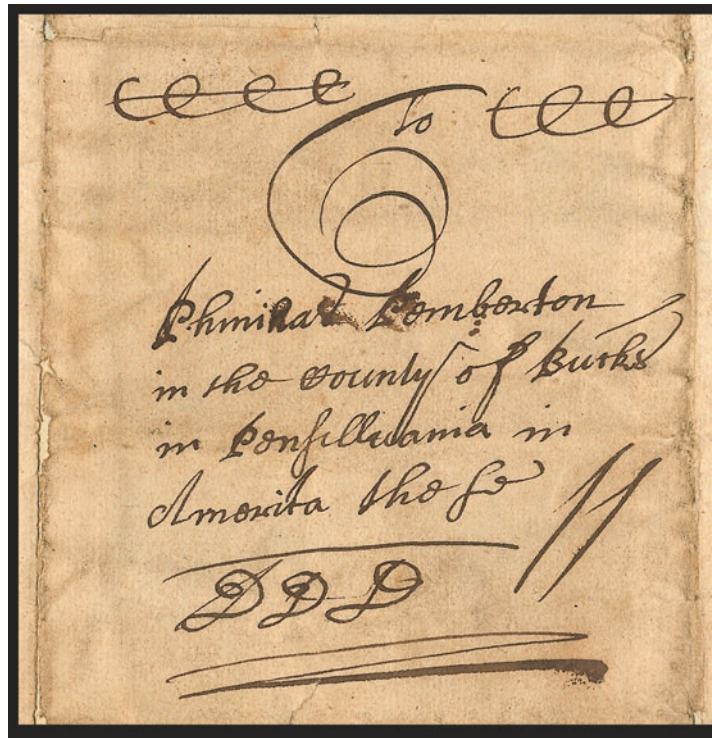 To
Phinihas Pemberton
in the County of Bucks
in Pensillvania in
America these
DDD